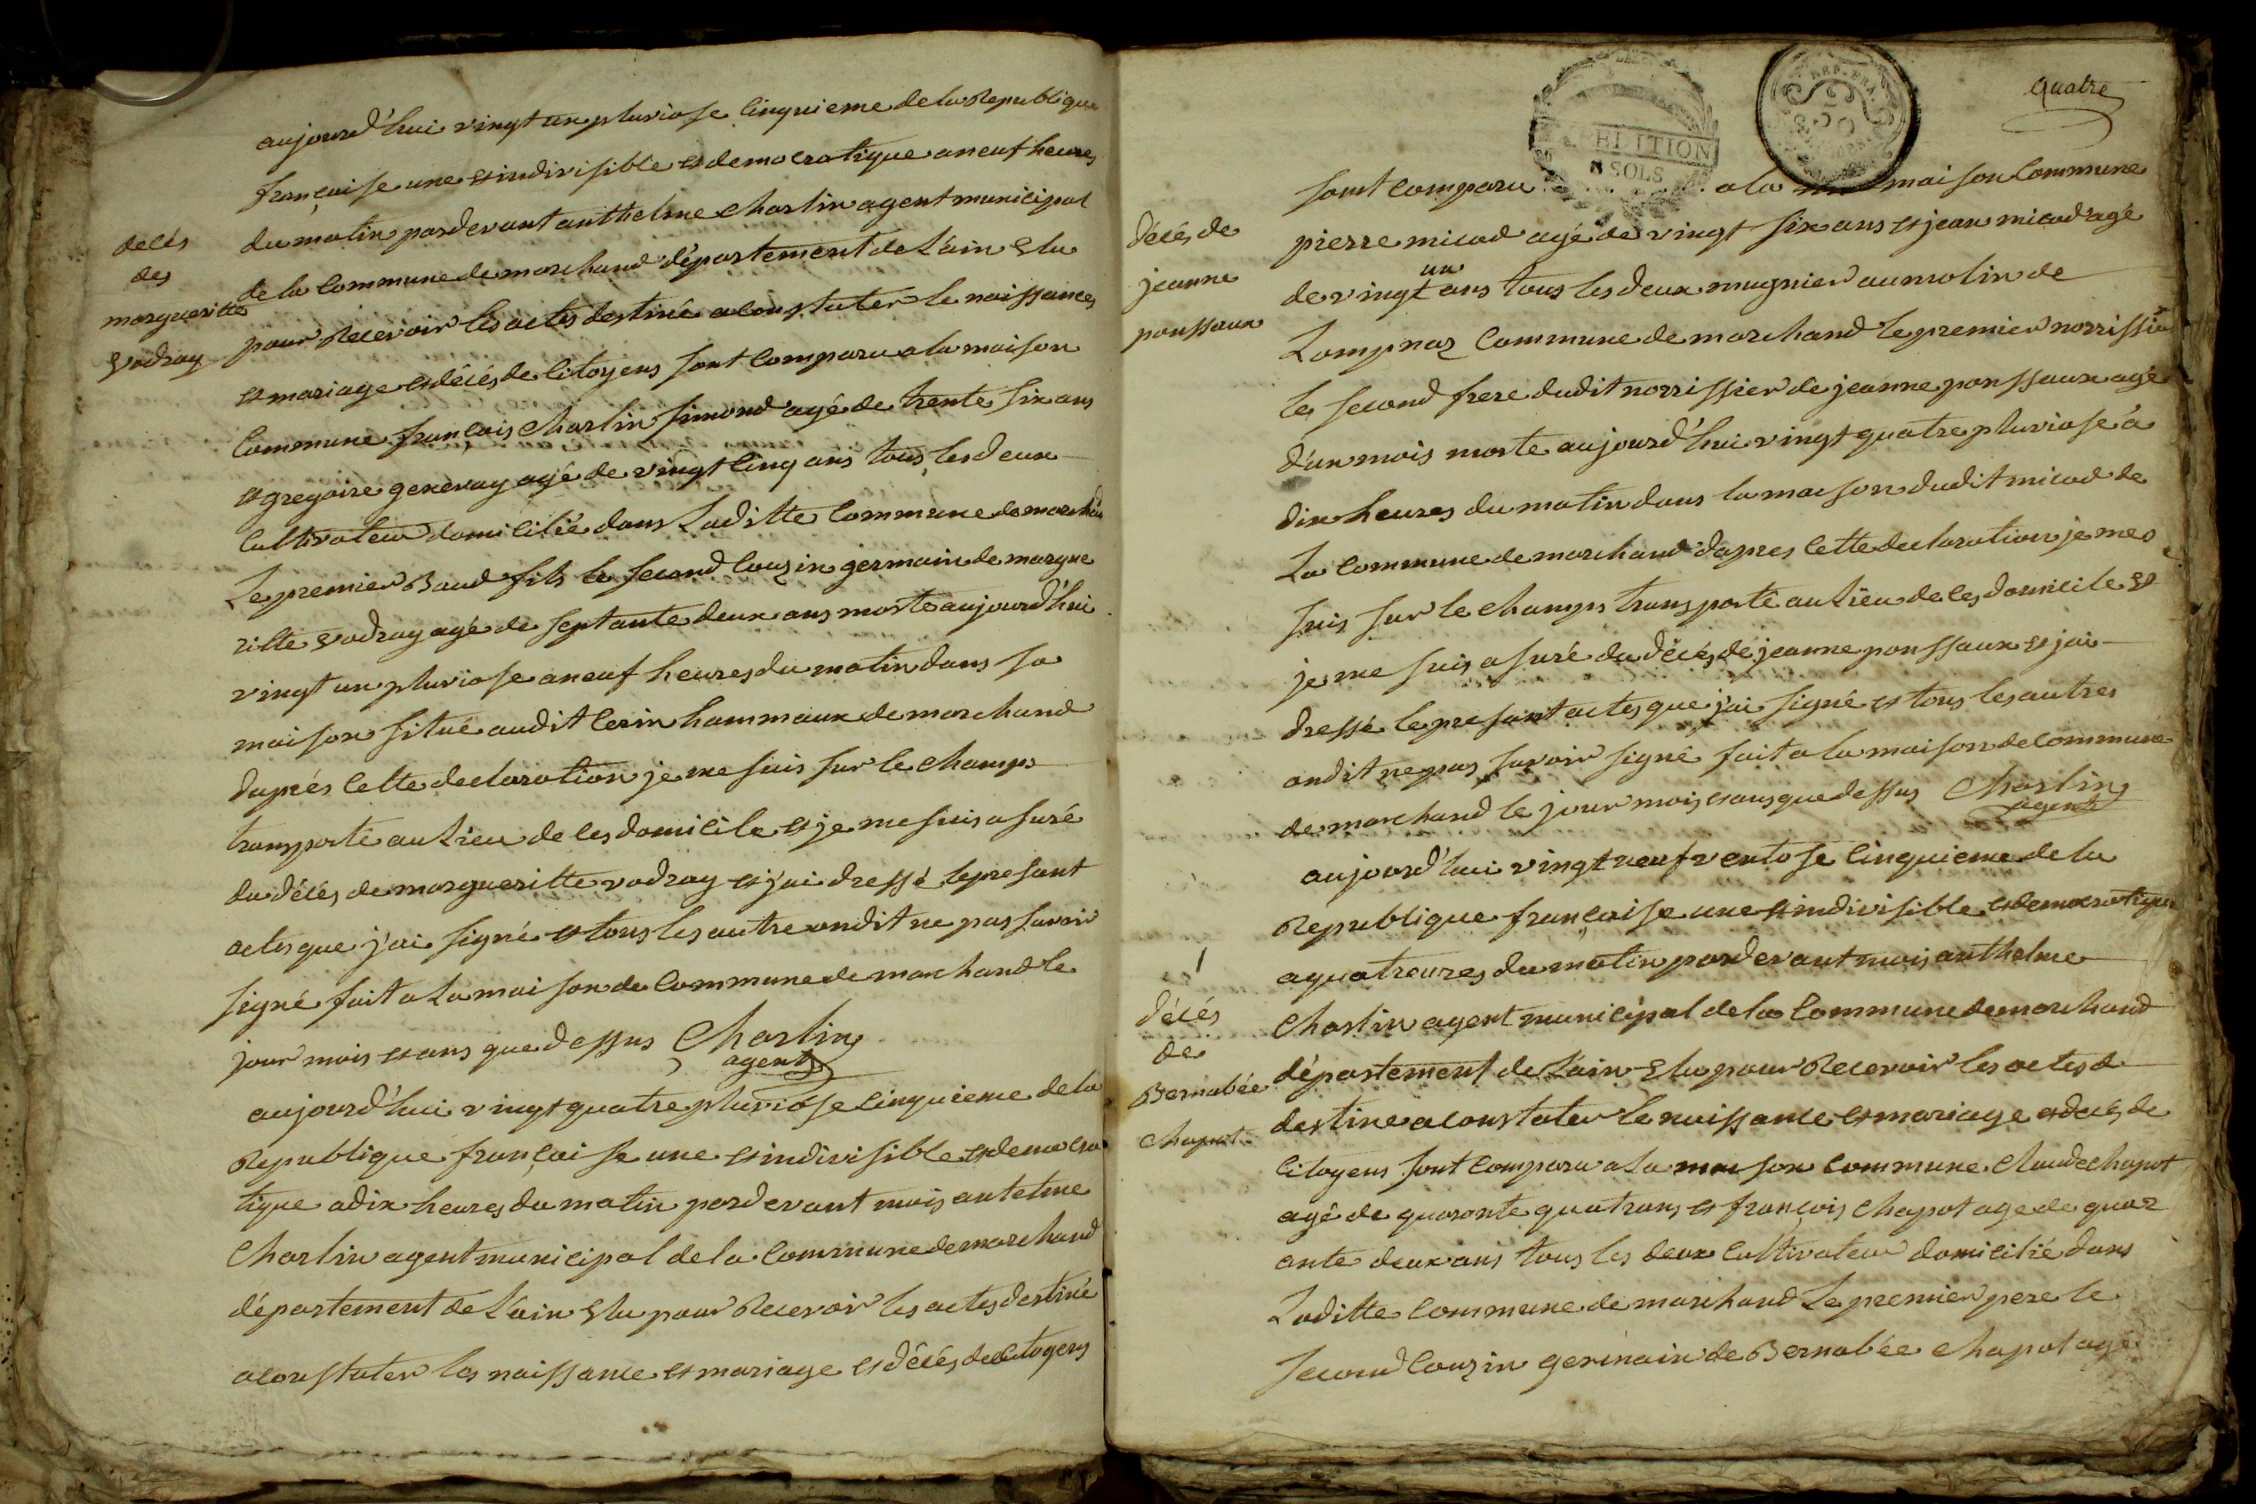 aujourd'hui vingt un pluviose cinquieme de la Republique
française une et indivisible et democratique a neuf heures
du matin pardevant anthelme charlin agent municipal
de la commune de marchand département de L'ain Elu
pour Recevoir les actes destiné a constater le naissances
et mariage et décés de citoyens sont comparu a la maison
commune françois charlin simond agé de trente six ans
et gregoire genevay agé de vingt cinq ans tous les deux
cultivateur domicilié dans Laditte commune de marchan
Le premier Baud fils le second couzin germain de margue
ritte vodray agé de septante deux ans morte aujourd'hui
vingt un pluviose a neuf heures du matin dans sa
maison situé audit cerin hammaux de marchand
daprés cette declaration je me suis sur le champs
transporté au Lieu de ces domicile et je me suis asuré
du décés de margueritte vodray et j'ai dressé le presant
actes que j'ai signé et tous les autre ondit ne pas savoir
signé fait a La maison de commune de marchand le
jour mois et ans que dessus Charlin
agent
decés
des
margueritte
Vodray
aujourd'hui vingt quatre pluviose cinquieme de la
Republique française une et indivisible et democra
tique a dix heures du matin pardevant mois antelme
Charlin agent municipal de la commune de marchand
département de L'ain Elu pour Recevoir les actes destiné
a constater les naissance et mariage et décés de citoyens
EDITION
8 SOLS
REP. FRA.
quatre
sont comparu a la maison commune
pierre micod agé de vingt six ans et jean micod agé
un
de vingt ans tous les deux mugnier au molin de
Lompnaz commune de marchand le premier norrissié
le second frere dudit norrissier de jeanne poussaux agé
d'un mois morte aujourd'hui vingt quatre pluviose a
dix heures du matin dans la maison dudit micod de
La commune de marchand dapres cette declaration je mes
suis sur le champs transporté au Lieu de ces domicile et
je me suis asuré du décés de jeanne poussaux et jai
dressé le presant actes que j'ai signé et tous les autres
ondit ne pas savoir signé fait a la maison de commune
de marchand le jour mois et ans que dessus Charlin
agent
décés de
jeanne
poussaux
aujourd'hui vingt neuf ventose cinquieme de la
Republique française une et indivisible et democratique
a quatreures du matin pardevant mois anthelme
Charlin agent municipal de la commune de marchand
département de L'ain Elu pour Recevoir les actes d
destine a constater le naissance et mariage et decés de
citoyens sont comparu a La maison commune Claude chapot
agé de quaronte quatrans et françois chapot age de quar
ante deux ans tous les deux cultivateur domicilié dans
Laditte commune de marchand Le premier pere le
second couzin germain de Bernabée chapot agé
décés
de
Bernabée
chapot